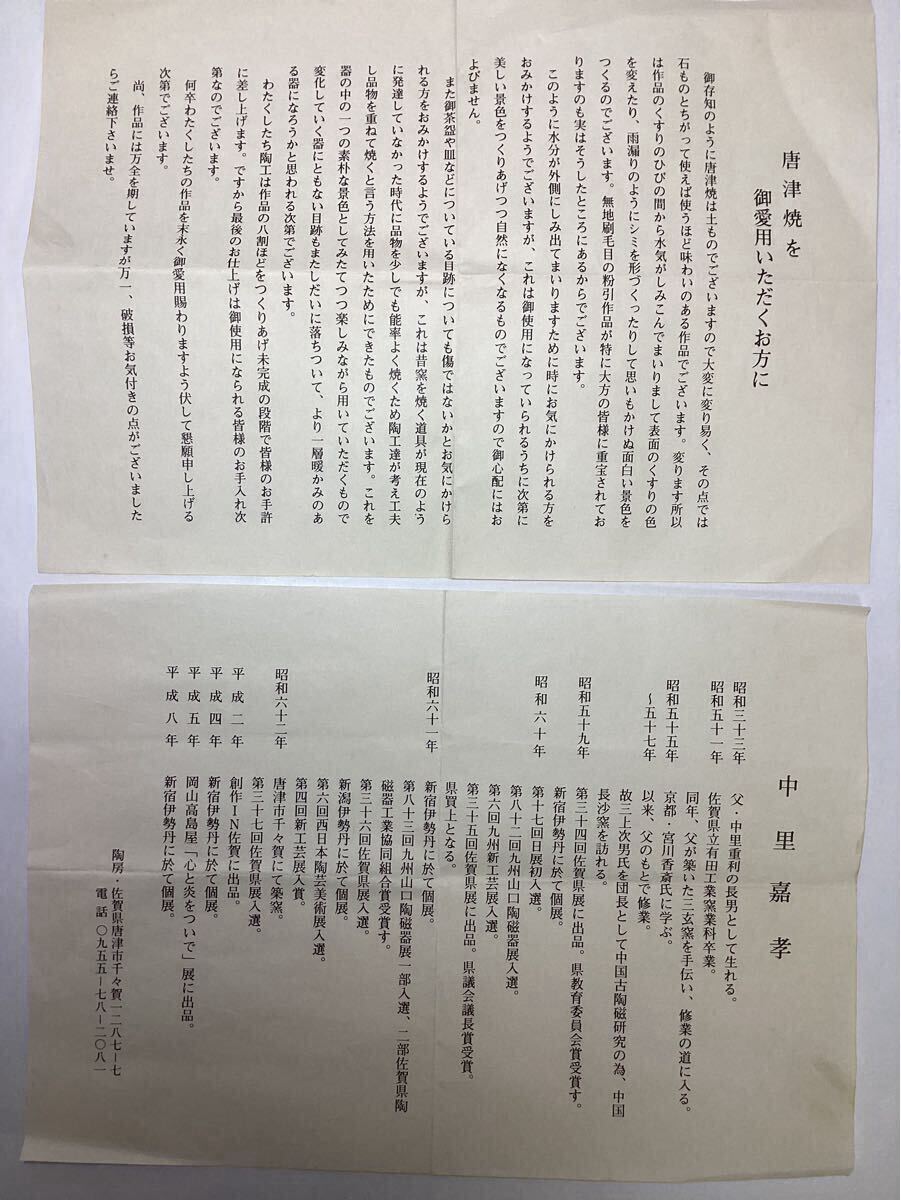 唐津焼を
御愛用いただくお方に
御存知のように唐津焼は土ものでございますので大変に変り易く、その点では
石ものとちがって使えば使うほど味わいのある作品でございます。変ります所以
は作品のくすりのひびの間から水気がしみこんでまいりまして表面のくすりの色
を変えたり、雨漏りのようにシミを形づくったりして思いもかけぬ面白い景色を
つくるのでございます。無地刷毛目の粉引作品が特に大方の皆様に重宝されてお
りますのも実はそうしたところにあるからでございます。
このように水分が外側にしみ出てまいりますために時にお気にかけられる方を
おみかけするようでございますが、これは御使用になっていられるうちに次第に
美しい景色をつくりあげつつ自然になくなるものでございますので御心配にはお
よびません。
また御茶盌や皿などについている目跡についても傷ではないかとお気にかけら
れる方をおみかけするようでございますが、これは昔窯を焼く道具が現在のよう
に発達していなかった時代に品物を少しでも能率よく焼くため陶工達が考え工夫
し品物を重ねて焼くと言う方法を用いたためにできたものでございます。これを
器の中の一つの素朴な景色としてみたてつつ楽しみながら用いていただくもので
変化していく器にともない目跡もまたしだいに落ちついて、より一層暖かみのあ
る器になろうかと思われる次第でございます。
わたくしたち陶工は作品の八割ほどをつくりあげ未完成の段階で皆様のお手許
に差し上げます。ですから最後のお仕上げは御使用になられる皆様のお手入れ次
第なのでございます。
何卒わたくしたちの作品を末永く御愛用賜わりますよう伏して懇願申し上げる
次第でございます。
尚、作品には万全を期していますが万一、破損等お気付きの点がございました
らご連絡下さいませ。
中里嘉孝
昭和三十三年 父・中里重利の長男として生れる。
昭和五十一年 佐賀県立有田工業窯業科卒業。
同年、父が築いた三玄窯を手伝い、修業の道に入る。
昭和五十五年 京都・宮川香斎氏に学ぶ。
～五十七年 以来、父のもとで修業。
故三上次男氏を団長として中国古陶磁研究の為、中国
長沙窯を訪れる。
昭和五十九年 第三十四回佐賀県展に出品。県教育委員会賞受賞す。
新宿伊勢丹に於て個展。
昭和六十年 第十七回日展初入選。
第八十二回九州山口陶磁器展入選。
第六回九州新工芸展入選。
第三十五回佐賀県展に出品。県議会議長賞受賞。
県買上となる。
昭和六十一年 新宿伊勢丹に於て個展。
第八十三回九州山口陶磁器展一部入選、二部佐賀県陶
磁器工業協同組合賞受賞す。
第三十六回佐賀県展入選。
新潟伊勢丹に於て個展。
第六回西日本陶芸美術展入選。
第四回新工芸展入賞。
昭和六十二年 唐津市千々賀にて築窯。
第三十七回佐賀県展入選。
平成二年 創作IN佐賀に出品。
平成四年 新宿伊勢丹に於て個展。
平成五年 岡山高島屋「心と炎をついで」展に出品。
平成八年 新宿伊勢丹に於て個展。
陶房・佐賀県唐津市千々賀一二八七－七
電話〇九五五－七八－二〇八一